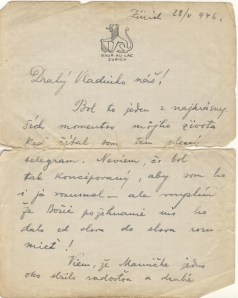 Zürich 28/V 946.
BAUR AU LAC
ZURICH
Drahý Vladinko náš!
Bol to jeden z najkrásnej
ších momentov môjho života
keď čítal som ten
telegram. Neviem, či bol
tak koncipovaný, aby som ho
i ja rozumel — ale
že Božie požehnanie
dalo od slova do slova rozu
mieť!
Viem, že Mamičke jedno
oko radosťou a druhé